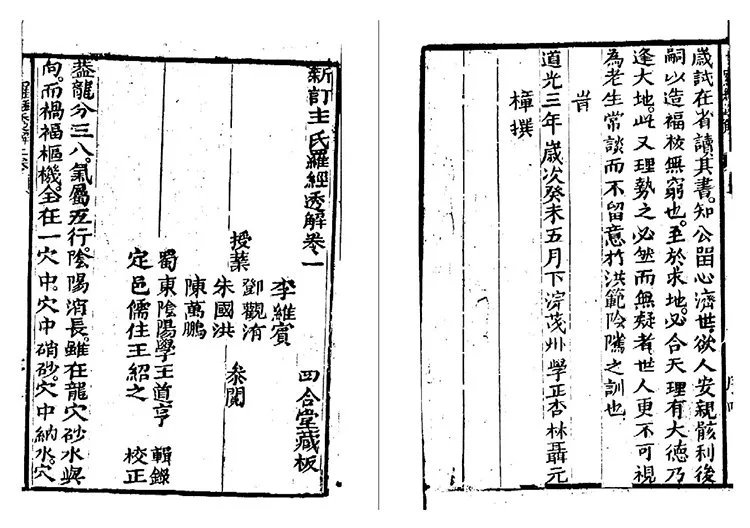 歲試在省讀其書。知公留心濟世。欲人安親骸利後
嗣以造福於無窮也。至於求地。必合天理有大德乃
逢大地。此又理勢之必然而無疑者。世人更不可視
為老生常談而不留意於洪範陰隲之訓也
旹
道光三年歲次癸未五月下浣茂州學正杏林聶元
樟撰
新訂王氏羅經透解卷一
四合堂藏板
李維賓
鄧觀洧
授業 朱國洪 叅閱
陳萬鵬
蜀東陰陽學王道亨 輯錄
定邑儒住王紹之 校正
盖龍分三八。氣屬五行。陰陽消長。雖在龍穴砂水與
向。而禍福樞機。全在一穴中。穴中硝砂。穴中納水。穴